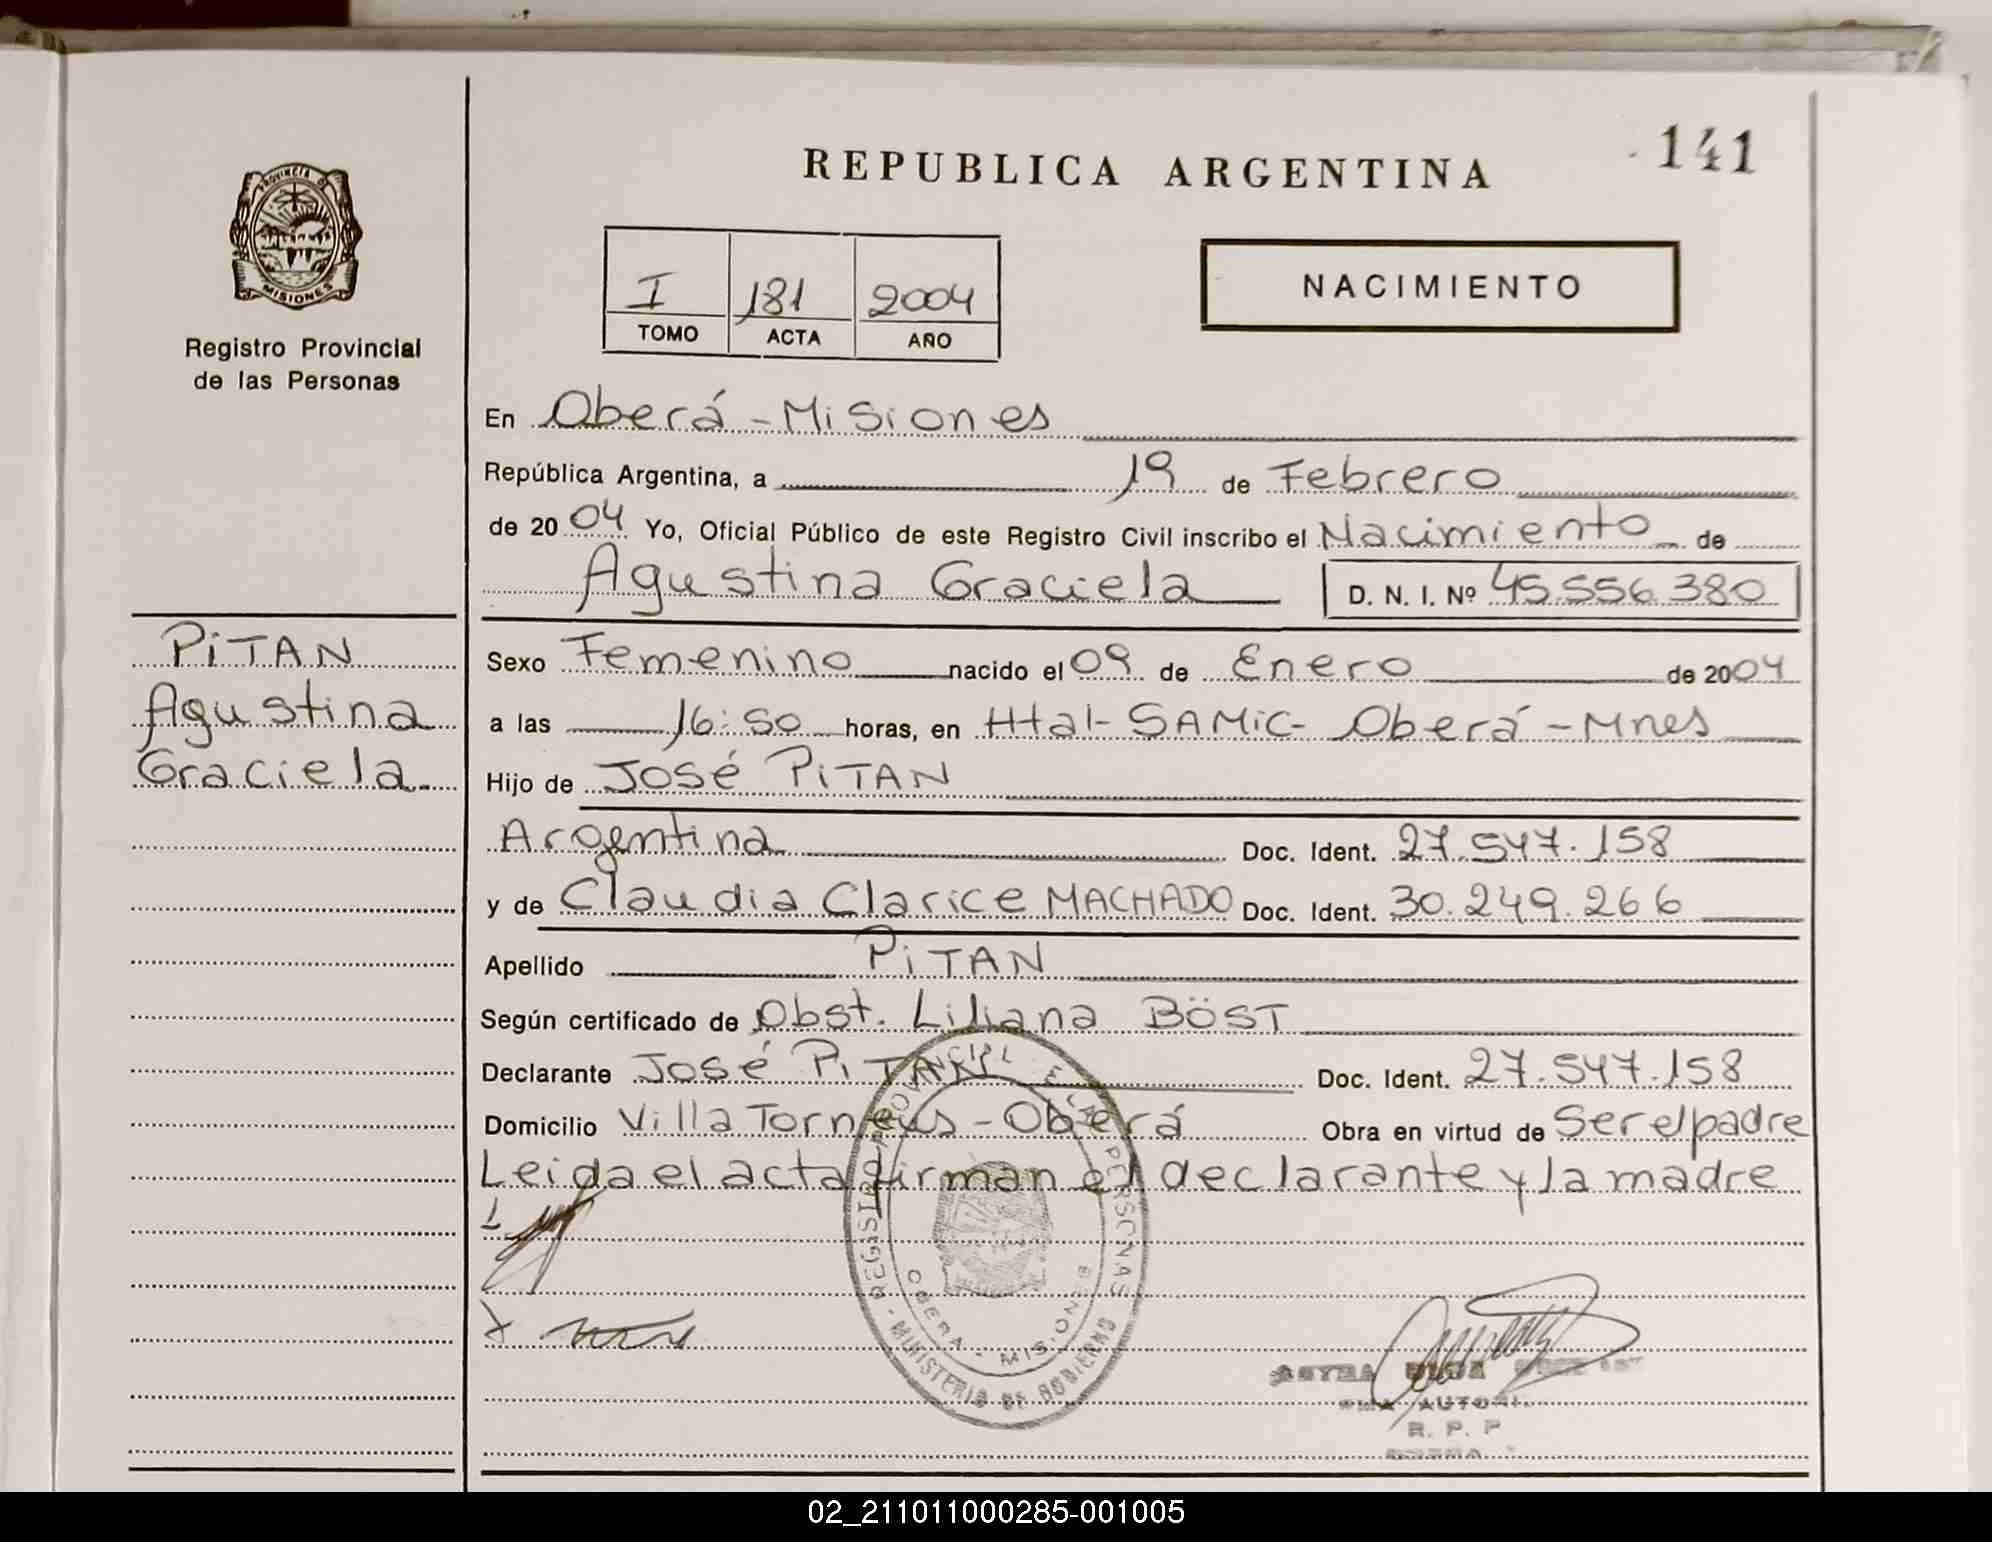 REPUBLICA ARGENTINA
141
PROVINCIA DE
MISIONES
Registro Provincial
de las Personas
I 181 2004
TOMO ACTA AÑO
NACIMIENTO
En Oberá - Misiones
República Argentina, a 19 de Febrero
de 2004 Yo, Oficial Público de este Registro Civil inscribo el Nacimiento de
Agustina Graciela D. N. I. Nº 45.556.380
PiTAN
Agustina
Graciela
Sexo Femenino nacido el 09 de Enero de 2004
a las 16:50 horas, en Htal-SAMiC- Oberá - Mnes
Hijo de José PiTAN
Argentina Doc. Ident. 27.547.158
y de Claudia Clarice MACHADO Doc. Ident. 30.249.266
Apellido PiTAN
Según certificado de Obst. Liliana BÖST
Declarante José PiTAN Doc. Ident. 27.547.158
Domicilio Villa Torneus - Oberá Obra en virtud de Ser el padre
Leida el acta firman el declarante y la madre
REGISTRO PROVINCIAL DE LAS PERSONAS
OBERA - MISIONES
MINISTERIO DE GOBIERNO
R. P. P
02_211011000285-001005